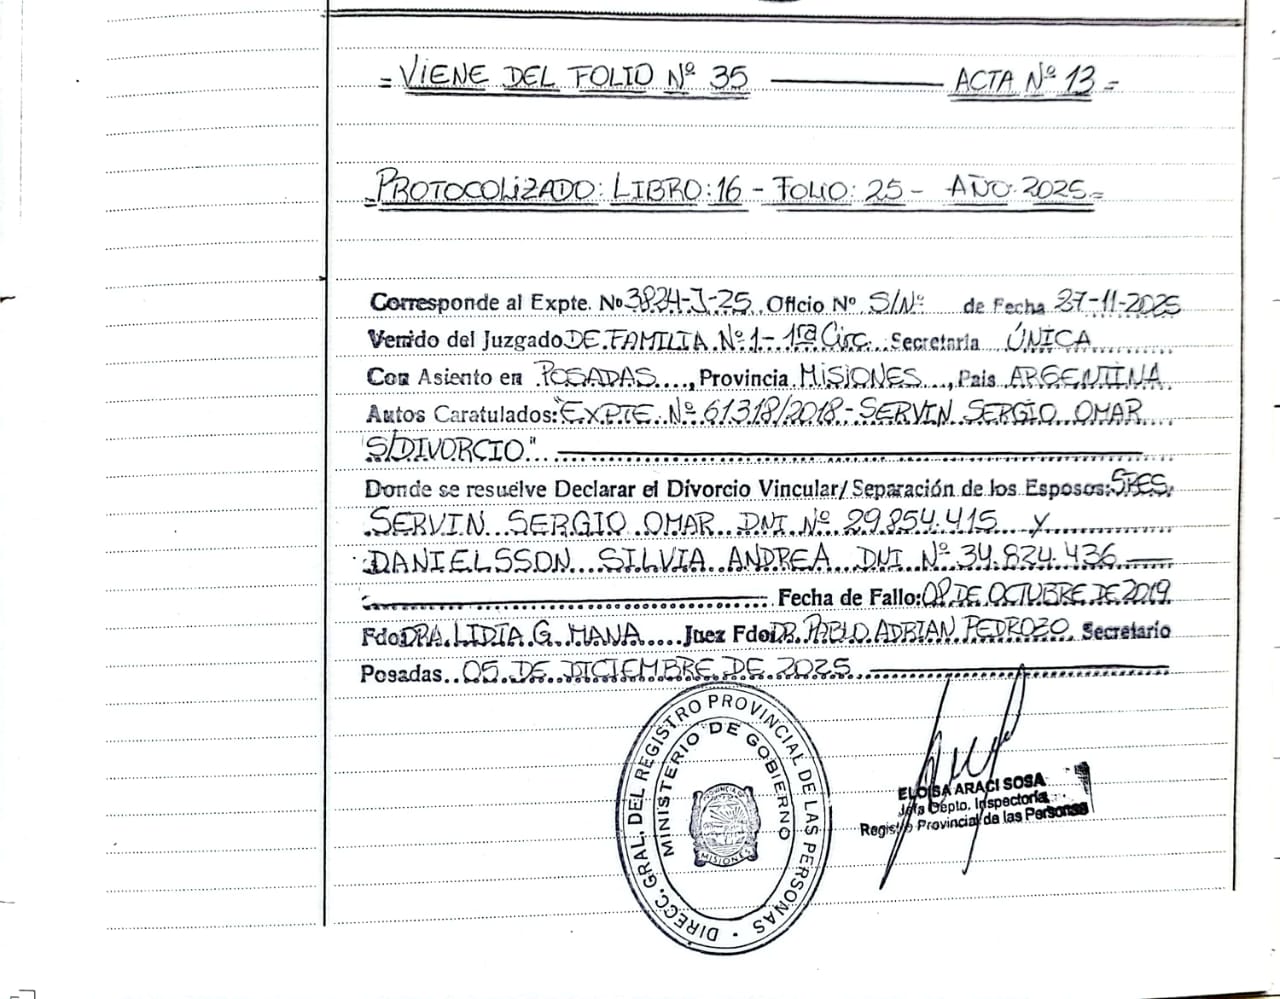 = VIENE DEL FOLIO Nº 35 ——— ACTA Nº 13 =
= PROTOCOLIZADO: LIBRO: 16 - FOLIO: 25 - AÑO 2025 =
Corresponde al Expte. Nº 3824-J-25.. Oficio Nº S/Nº de Fecha 27-11-2025
Venido del Juzgado DE FAMILIA Nº 1 - 1ra Circ. Secretaría ÚNICA
Con Asiento en POSADAS...., Provincia MISIONES..., Pais ARGENTINA
Autos Caratulados: "EXPTE. Nº 61318/2018 - SERVIN SERGIO OMAR
S/DIVORCIO."
Donde se resuelve Declarar el Divorcio Vincular/ Separación de los Esposos: SRES.
SERVIN SERGIO OMAR DNI Nº 29.854.415 y
DANIELSSON SILVIA ANDREA DNI Nº 34.824.436
Fecha de Fallo: 08 DE OCTUBRE DE 2019
Fdo DRA. LIDIA G. MANA..... Juez Fdo: DR. PABLO ADRIAN PEDROZO. Secretario
Posadas.. 05 DE DICIEMBRE DE 2025.
DIRECC. GRAL. DEL REGISTRO PROVINCIAL DE LAS PERSONAS
MINISTERIO DE GOBIERNO
PROVINCIA DE
MISIONES
ELOISA ARACI SOSA
Jefa Depto. Inspectoría
Registro Provincial de las Personas